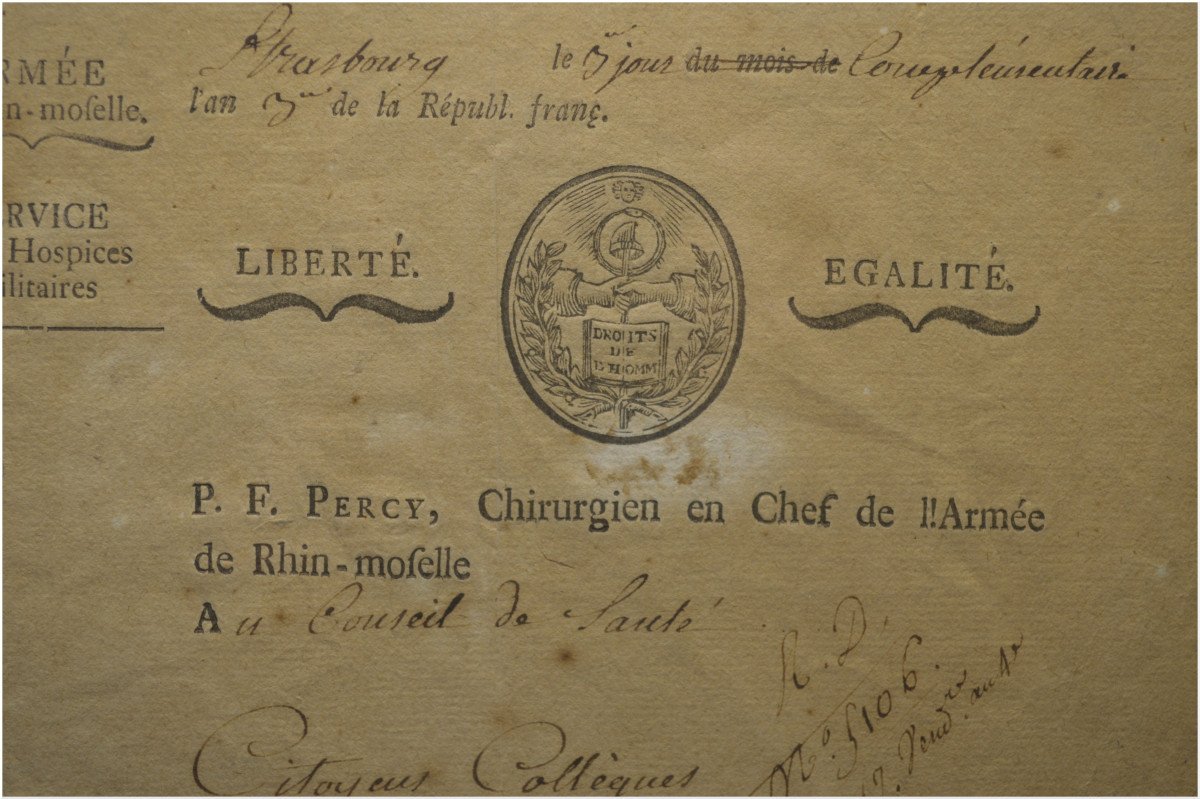 RMÉE
n-moſelle.
Strasbourg le 3 jour du mois de Complémentaire
l'an 3me de la Républ. franç.
RVICE
Hospices
ilitaires
LIBERTÉ.
DROITS
DE
L'HOMM
EGALITÉ.
P. F. PERCY, Chirurgien en Chef de l'Armée
de Rhin-moſelle
Au Conseil de Santé
R. D.
N.o 5106.
Vend.
Citoyens Collègues